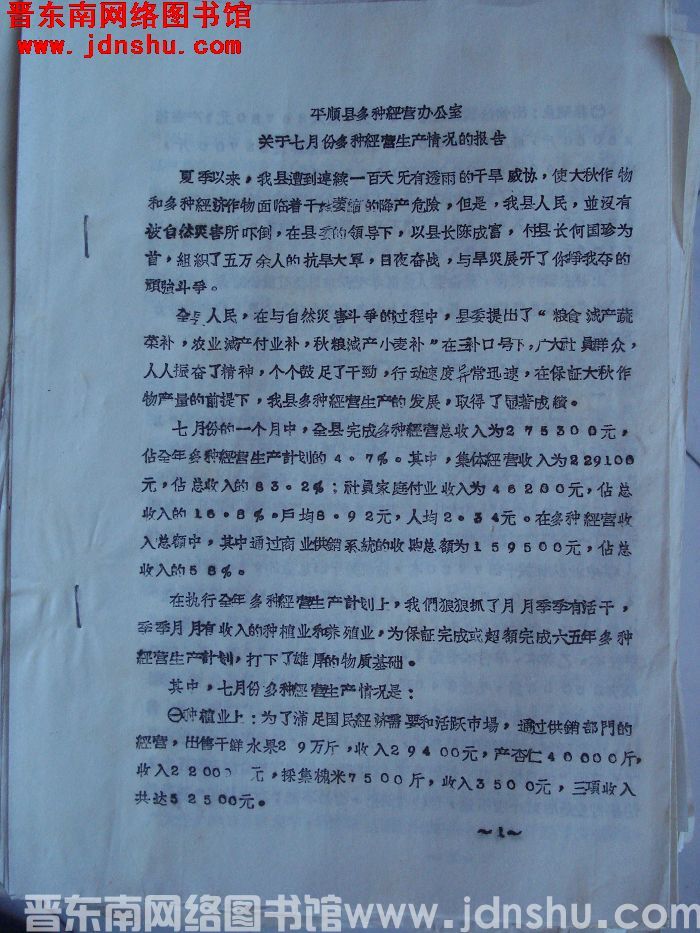 晋东南网络图书馆
www.jdnshu.com
平顺县多种經营办公室
关于七月份多种經营生产情况的报告
夏季以来，我县遭到連續一百天旡有透雨的干旱威协，使大秋作物
和多种經济作物面临着干枯萎縮的降产危險，但是，我县人民，並没有
被自然災害所吓倒，在县委的領导下，以县长陈成富，付县长何国珍为
首，組织了五万余人的抗旱大軍，日夜奋战，与旱災展开了你爭我夺的
頑強斗爭。
全县人民，在与自然災害斗爭的过程中，县委提出了“粮食減产蔬
菜补，农业減产付业补，秋粮減产小麦补”在三补口号下，广大社員群众，
人人振奋了精神，个个鼓足了干勁，行动速度异常迅速，在保証大秋作
物产量的前提下，我县多种經营生产的发展，取得了显著成績。
七月份的一个月中，全县完成多种經营总收入为275300元，
佔全年多种經营生产計划的4.7%。其中，集体經营收入为229100
元，佔总收入的83.2%；社員家庭付业收入为46200元，佔总
收入的16.8%。戶均8.92元，人均2.34元。在多种經营收
入总額中，其中通过商业供銷系統的收购总額为159500元，佔总
收入的58%。
在执行全年多种經营生产計划上，我們狠狠抓了月月季季有活干，
季季月月有收入的种植业和养殖业，为保証完成或超額完成六五年多种
經营生产計划，打下了雄厚的物质基础。
其中，七月份多种經营生产情况是：
㊀种植业上：为了滿足国民經济需要和活跃市場，通过供銷部門的
經营，出售干鮮水果29万斤，收入29400元，产杏仁40000斤，
收入22000元，採集槐米7500斤，收入3500元，三項收入
共达52500元。
～1～
晋东南网络图书馆 www.jdnshu.com